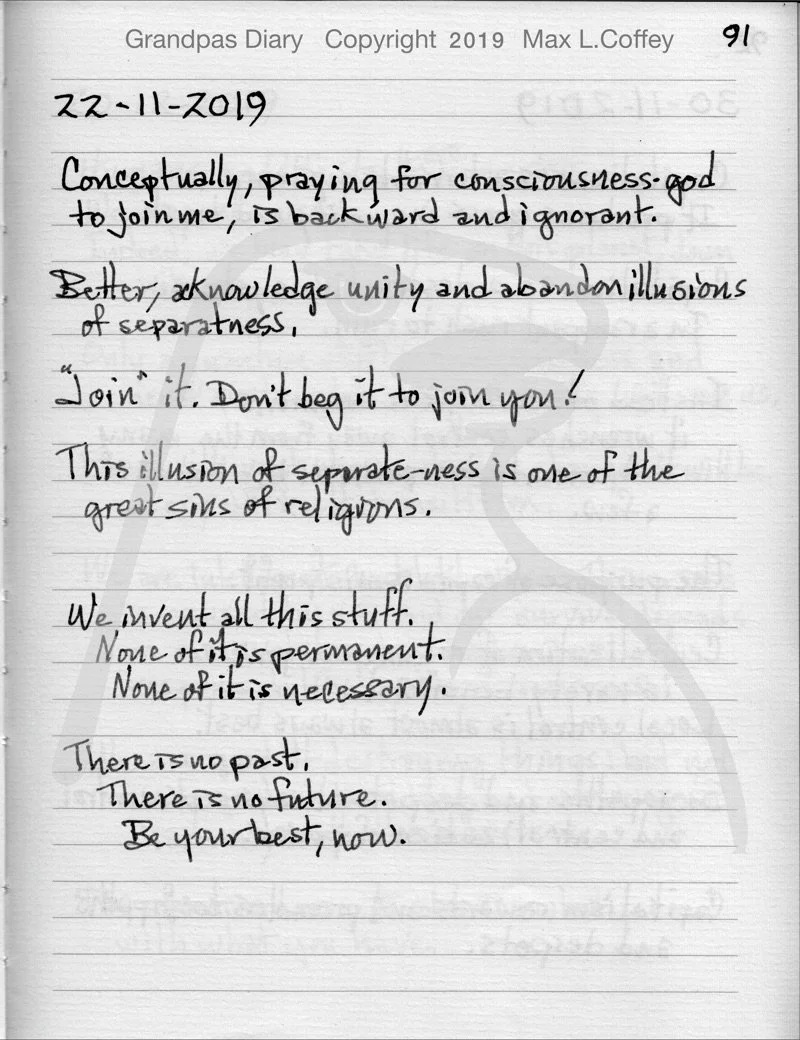 Grandpas Diary Copyright 2019 Max L.Coffey 91
22-11-2019
Conceptually, praying for consciousness-god
to join me, is backward and ignorant.
Better, aknowledge unity and abandon illusions
of separatness.
"Join" it. Don't beg it to join you!
This illusion of separate-ness is one of the
great sins of religions.
We invent all this stuff.
None of it is permanent.
None of it is necessary.
There is no past.
There is no future.
Be your best, now.